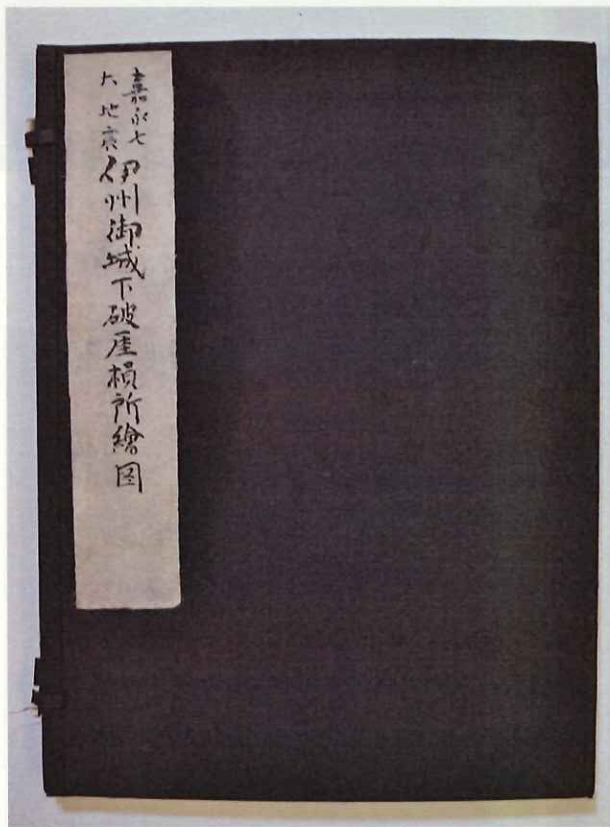 嘉永七
大地震
伊州御城下破座損所繪図